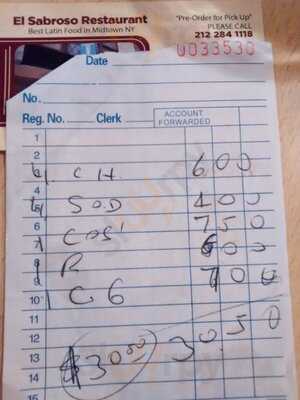 El Sabroso Restaurant
Best Latin Food in Midtown NY
"Pre-Order for Pick Up"
PLEASE CALL
212 284 1118
0033530
Date
No.
Reg. No. Clerk ACCOUNT FORWARDED
1
2
3 1 CH 600
4
5 SOD 400
6 COS 750
7
8 R 600
9 C6 700
10
11
12 30 50
13 $30.00
14
15